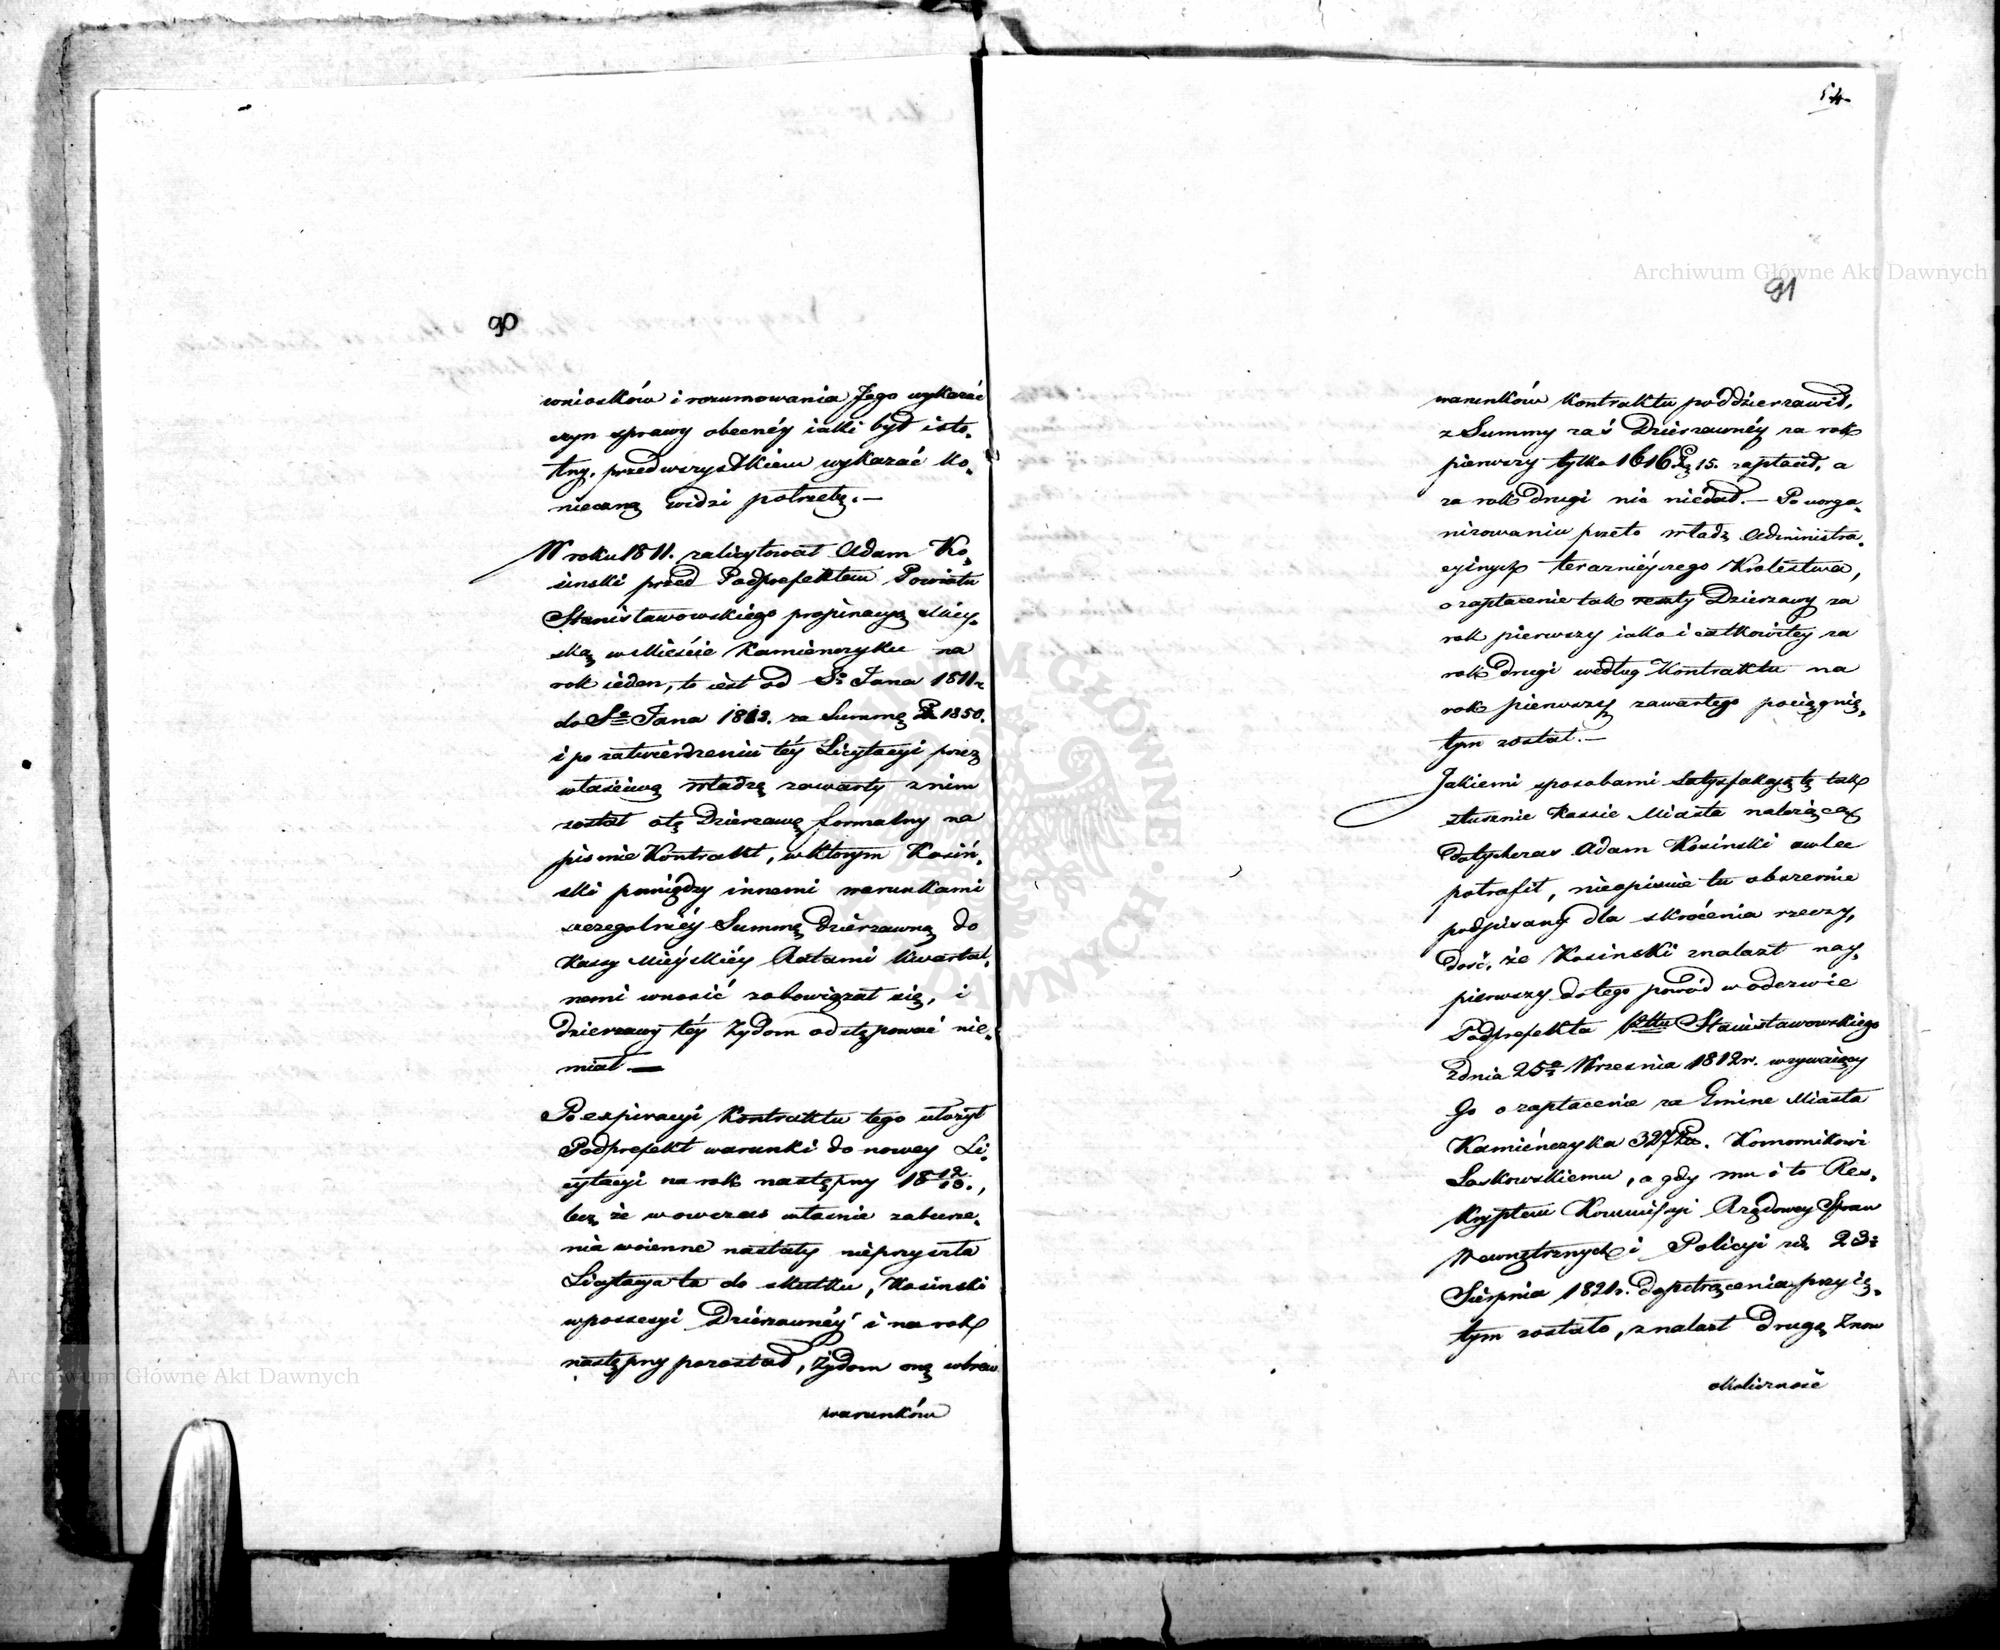 90
wniosków i rozumowania Jego wykazać
czyn sprawy obecnéy iaki był isto,
tny, przedwszystkiem wykazać ko,
nieczną widzi potrzebę. —
W roku 1811. zalicytował Adam Ko,
sinski przed Podprefektem Powiatu
Stanisławowskiego propinacyą Miey,
ską w Mieście Kamienczyku na
rok ieden, to iest od Sgo Jana 1811r
do Sgo Jana 1812. za Summę Zł 1850.
i po zatwierdzeniu téy Licytacyi przez
właściwą władzę zawarty z nim
został o tę Dzierzawę formalny na
pismie Kontrakt, w ktorym Kosiń,
ski pomiędzy innemi warunkami
szczegolniéy Summę dzierzawną do
Kassy Miéyskiéy Ratami kwartal,
nemi wnosić zobowiązał się, i
dzierzawy téy Żydom odstępować nie,
miał —
Po expiracyi Kontraktu tego ułożył
Podprefekt warunki do nowey Li,
cytacyi na rok następny 1812/13.,
lecz że wowczas właśnie zaburze,
nia woienne nastały nieprzyszła
Licytacya ta do skutku, Kosinski
w possessyi Dzierzawnéy i na rok
następny pozostał, Żydom onę wbrew
warunków
54
91
warunków Kontraktu poddzierzawił,
z Summy zaś Dzierzawnéy za rok
pierwszy tylko 1616 Zł 15. zapłacił, a
za rok drugi nic niedał. — Po uorga,
nizowaniu przeto władz Administra,
cyinych teraznieyszego Krolestwa,
o zapłacenie tak reszty Dzierzawy za
rok pierwszy iako i całkowitey za
rok drugi według Kontraktu na
rok pierwszy zawartego pociągnię,
tym został. —
Jakiemi sposobami satysfakcyą tę tak
słusznie Kassie Miasta należącą
dotychczas Adam Kosinski zwlec
potrafił, nieopisuie tu obszernie
podpisany dla skrócenia rzeczy,
dość, że Kosinski znalazł nay,
pierwszy do tego powód w odezwie
Podprefekta Pttu Stanisławowskiego
z dnia 25go Września 1812r. wzywaiącey
Go o zapłacenie za Gminę Miasta
Kamieńczyka 327 Zł. Komornikowi
Laskowskiemu, a gdy mu i to Res,
kryptem Kommissyi Rządowey Spraw
Wewnętrznych i Policyi z d. 23go
Sierpnia 1821r. do potrącenia przyię,
tym zostało, znalazł drugą znow
okoliczność
Archiwum Główne Akt Dawnych
Archiwum Główne Akt Dawnych